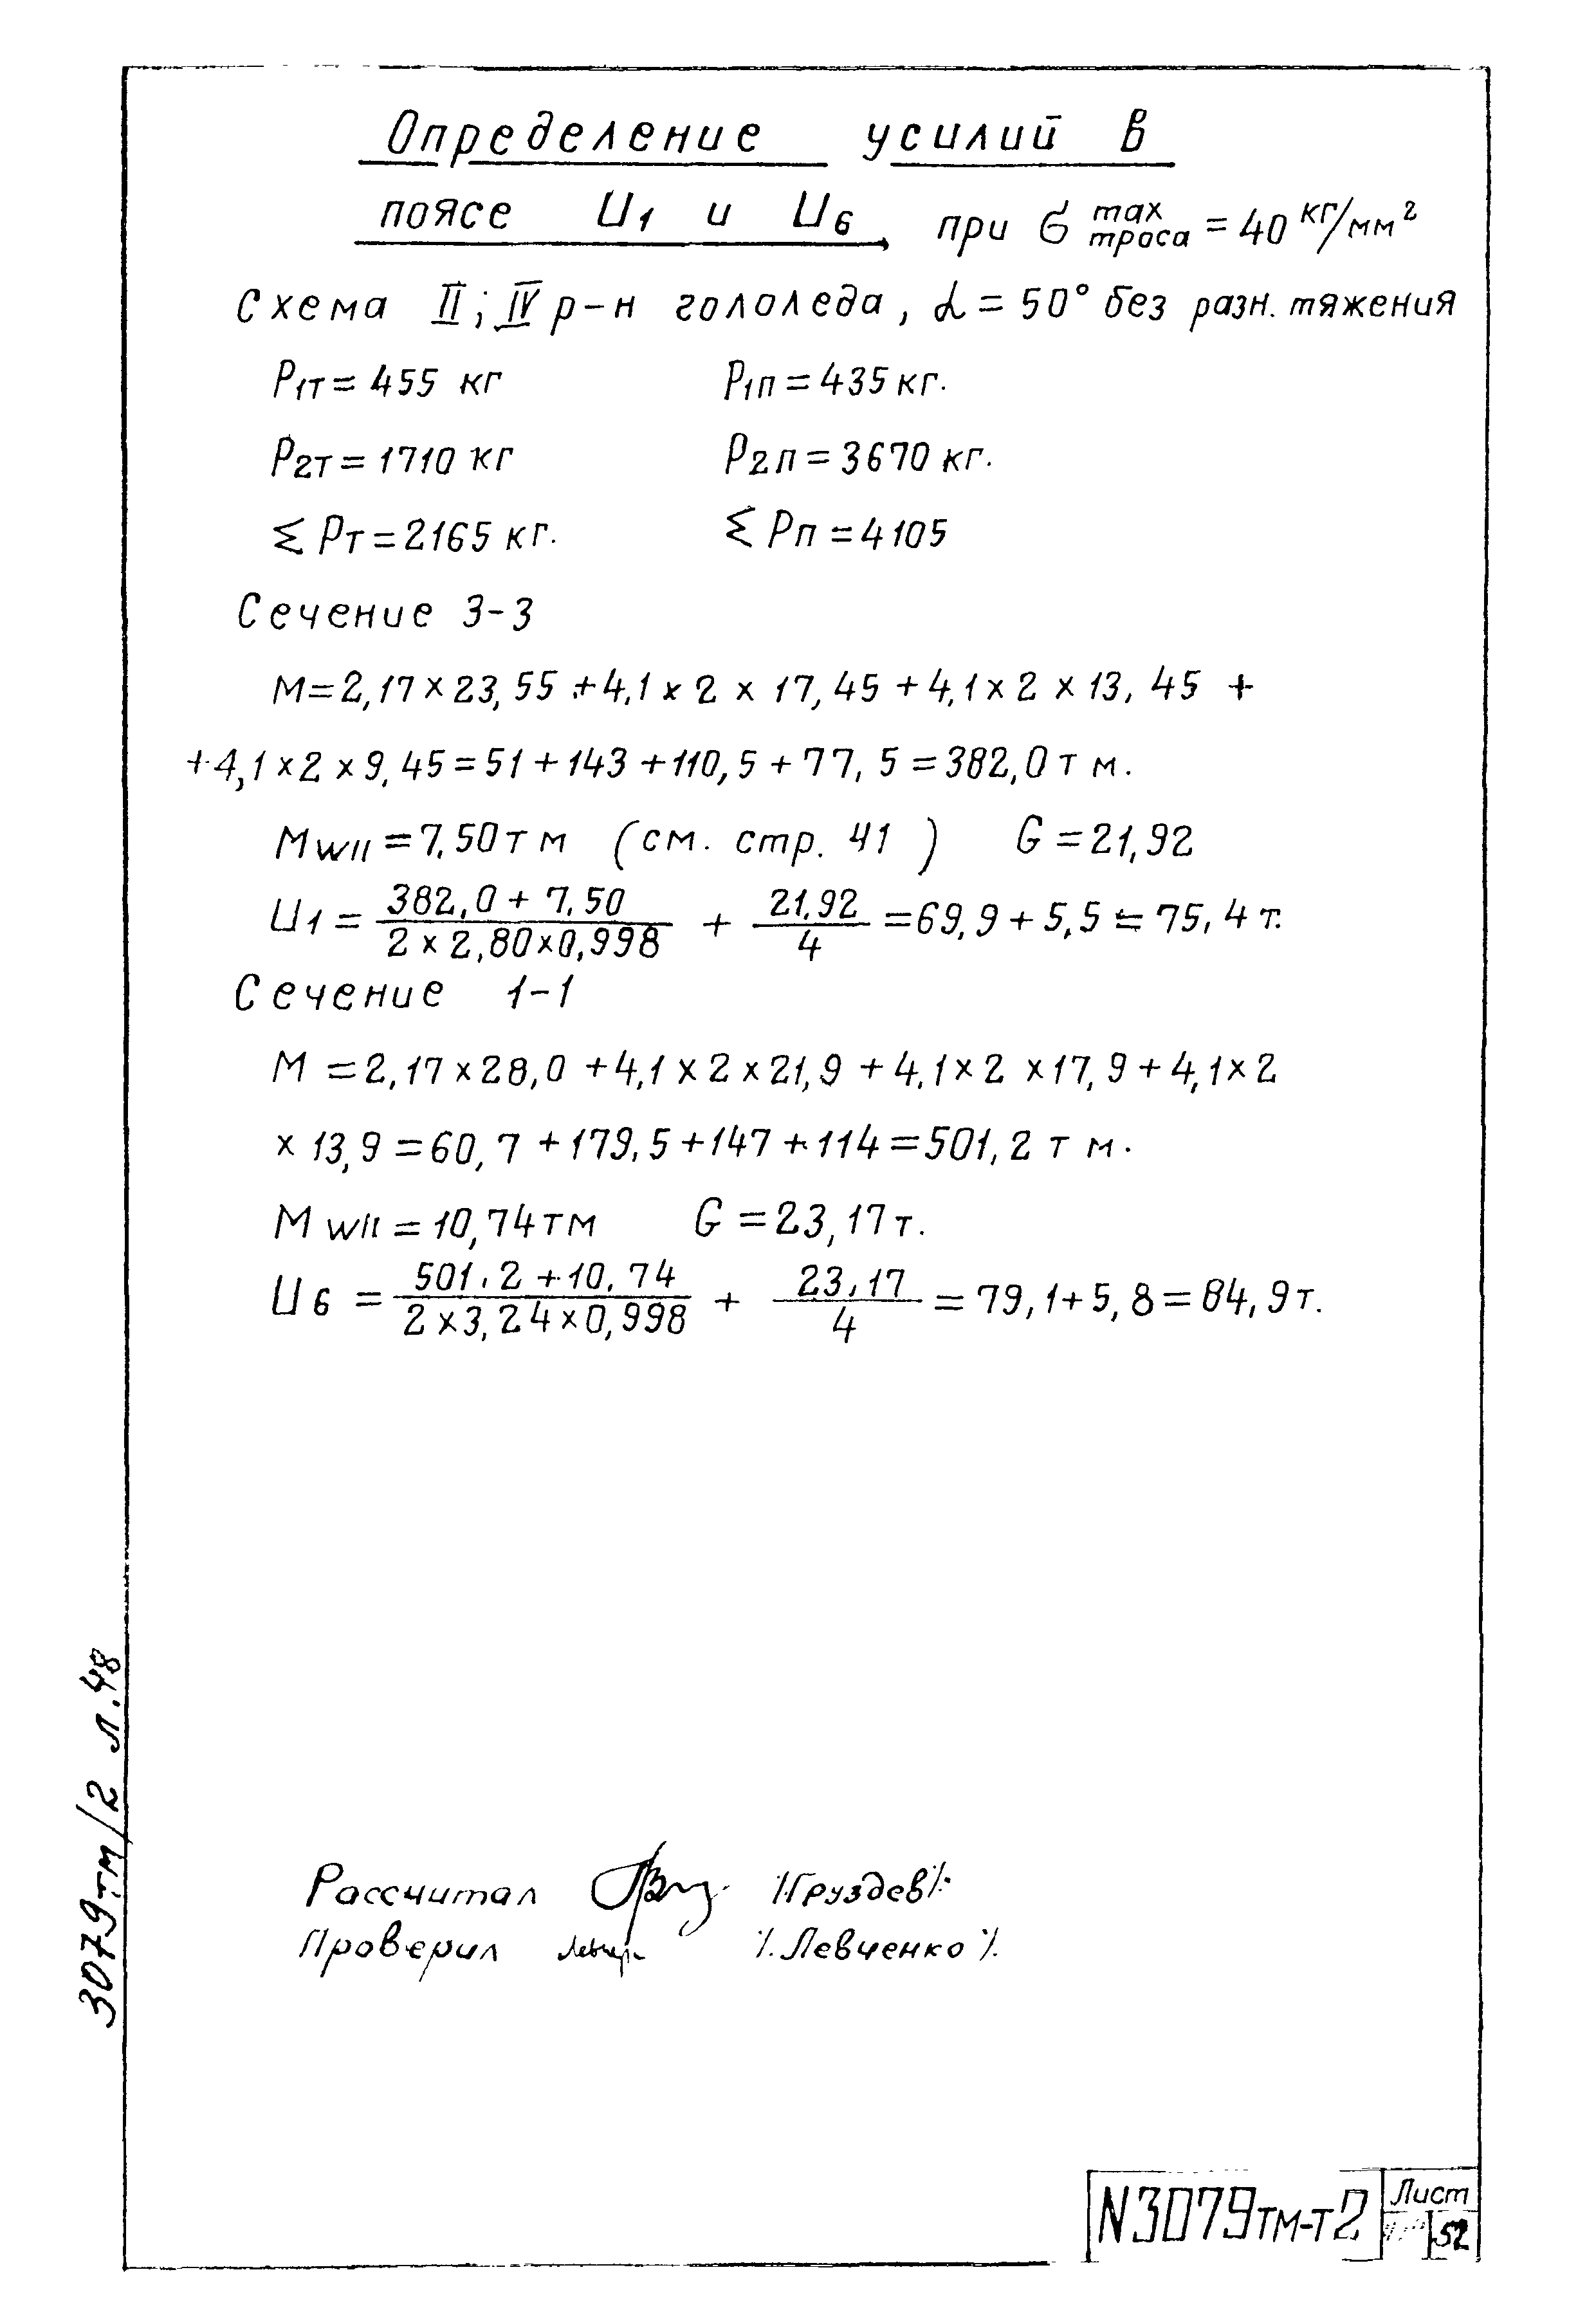 Определение усилий в
поясе U1 и U6, при σ max троса = 40 кг/мм²
Схема II; IV р-н гололеда, α = 50° без разн. тяжения
P1т = 455 кг P1п = 435 кг.
P2т = 1710 кг P2п = 3670 кг.
Σ Pт = 2165 кг. Σ Pп = 4105
Сечение 3-3
М = 2,17 × 23,55 + 4,1 × 2 × 17,45 + 4,1 × 2 × 13,45 +
+ 4,1 × 2 × 9,45 = 51 + 143 + 110,5 + 77,5 = 382,0 т м.
М WII = 7,50 т м (см. стр. 41) G = 21,92
U1 = (382,0 + 7,50) / (2 × 2,80 × 0,998) + 21,92 / 4 = 69,9 + 5,5 = 75,4 т.
Сечение 1-1
М = 2,17 × 28,0 + 4,1 × 2 × 21,9 + 4,1 × 2 × 17,9 + 4,1 × 2
× 13,9 = 60,7 + 179,5 + 147 + 114 = 501,2 т м.
М WII = 10,74 тм G = 23,17 т.
U6 = (501,2 + 10,74) / (2 × 3,24 × 0,998) + 23,17 / 4 = 79,1 + 5,8 = 84,9 т.
3079тм/2 л.48
Рассчитал /Груздев/
Проверил /Левченко/
N3079тм-т2 Лист
52